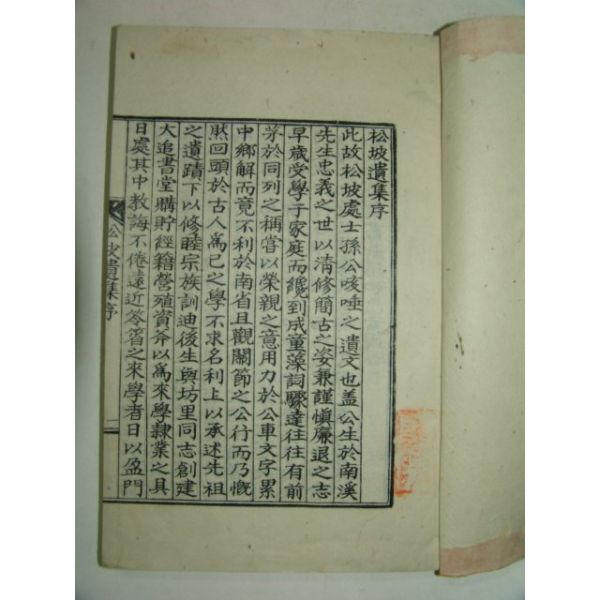 松坡遺集序
此故松坡處士孫公咳唾之遺文也盖公生於南溪
先生忠義之世以清修簡古之姿兼謹愼廉退之志
早歲受學于家庭而纔到成童藻詞驟達往往有前
茅於同列之稱嘗以榮親之意用力於公車文字累
中鄉解而竟不利於南省且觀關節之公行而乃慨
然回頭於古人爲已之學不求名利上以承述先祖
之遺蹟下以修睦宗族訓迪後生與坊里同志創建
大追書堂購貯經籍營殖資斧以爲來學隷業之具
日處其中教誨不倦遠近笭箵之來學者日以盈門
松坡遺集序